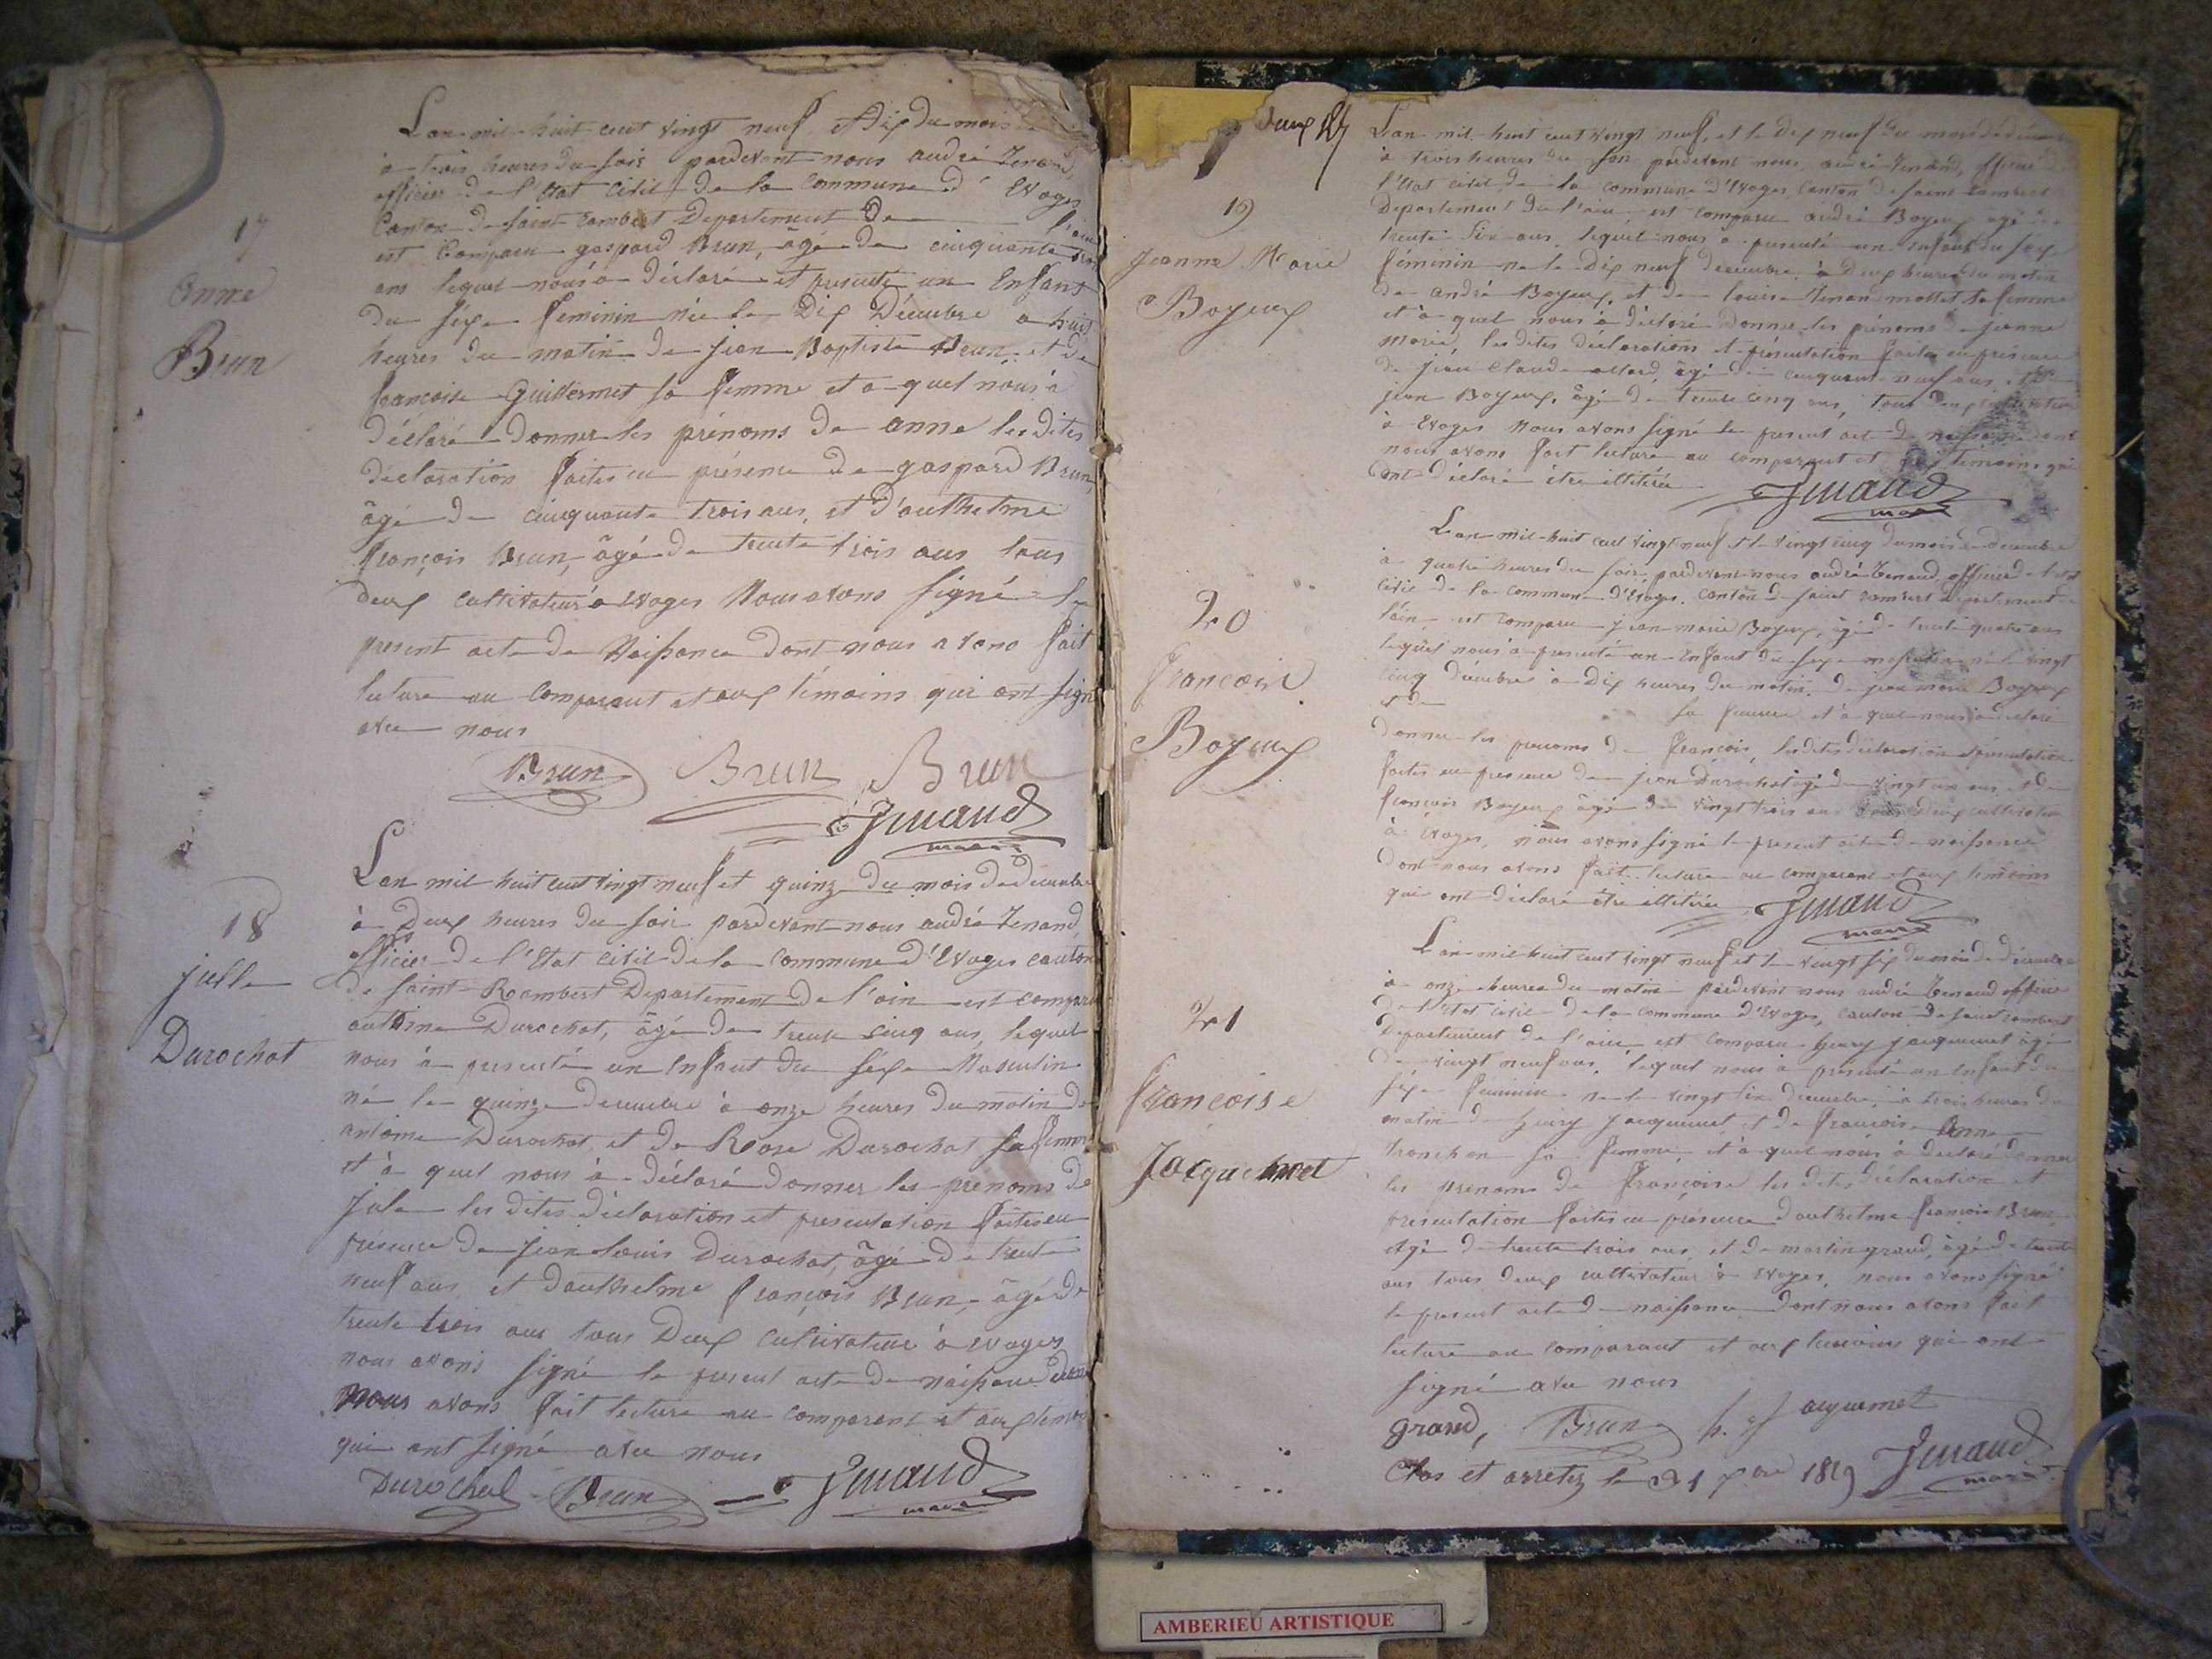 17
Anne
Brun
L'an mil huit cent vingt neuf, et dix du mois
à trois heures du soir pardevant nous andré Tenand
officier de l'Etat civil de la commune d'Evoges
Canton de saint rambert Departement de l'ain
est Comparu gaspard Brun, âgé de cinquante trois
ans lequel nous a déclaré et presenté un Enfant
du sexe feminin née le Dix Décembre a huit
heures du matin de jean Baptiste Brun, et de
françoise Guillermet sa femme et a quel nous à
déclaré donner les prénoms de anne les dites
déclaration faites en présence de gaspard Brun,
âgé de cinquante trois ans, et d'anthelme
françois Brun, âgé de trente trois ans tous
deux cultivateur à Evoges Nous avons signé le
present acte de Naissance dont nous avons fait
lecture au comparant et aux témoins qui ont signé
avec nous
Brun Brun Brun
Tenand
maire
18
julle
Durochat
L'an mil huit cent vingt neuf et quinze du mois de decembre
à Deux heures du soir pardevant nous andré Tenand,
officier de l'Etat civil de la commune d'Evoges canton
de saint Rambert Departement de l'ain est comparu
anthime Durochat, âgé de trente cinq ans, lequel
nous à presenté un Enfant du séxe Masculin
né le quinze decembre à onze heures du matin de
antoine Durochat, et de Rose Durochat sa femme
et à quel nous à déclaré donner les prenoms de
Jule les dites déclaration et presentation faites en
présence de jean louis Durochat, âgé de trente
neuf ans, et d'anthelme françois Brun, âgé de
trente trois ans tous Deux cultivateur à Evoges
nous avons signé le present acte de naissance dont
Nous avons fait lecture au comparant et aux temoins
qui ont signé avec nous
Durochat Brun Tenand
maire
19
Jeanne Marie
Boyeux
L'an mil huit cent vingt neuf, et le dix neuf du mois de decembre
à trois heures du soir pardevant nous, andré Tenand, officier de
l'Etat civil de la commune d'Evoges Canton de saint rambert
Departement de l'ain est comparu andré Boyeux âgé de
trente six ans lequel nous à presenté un enfant du séxe
féminin né le dix neuf decembre à deux heures du matin
de andré Boyeux, et de louise Tenand mollet sa femme
et à quel nous à déclaré donner les prénoms de jeanne
marie, les dites declarations et présentation faites en présence
de jean Claude allard, âgé de cinquante neuf ans, et de
jean Boyeux, âgé de trente cinq ans, tous deux cultivateur
à Evoges Nous avons signé le present acte de naissance dont
nous avons fait lecture au comparant et aux témoins qui
ont déclaré étre illitérée
Tenand
maire
20
François
Boyeux
L'an mil huit cent vingt neuf et le vingt cinq du mois de decembre
à quatre heures du soir, pardevant nous andré Tenand, officier de l'etat
civil de la commune d'Evoges. canton de saint rambert departement de
l'ain, est comparu jean marie Boyeux, âgé de trente quatre ans
lequel nous à presenté un enfant du sexe masculin né le vingt
cinq décembre à dix heures du matin. de jean marie Boyeux
et de sa femme et à quel nous à declaré
donner les prenoms de françois, les dites déclaration et présentation
faites en presence de jean Durochat âgé de vingt un ans et de
françois Boyeux âgé de vingt trois ans tous deux cultivateur
à Evoges, nous avons signé le present acte de naissance
dont nous avons fait lecture au comparant et aux temoins
qui ont déclaré étre illitérée Tenand
maire
21
Françoise
Jacquemet
L'an mil huit cent vingt neuf et le vingt six du mois de décembre
à onze heures du matin pardevant nous andré Tenand officier
de l'etat civil de la commune d'Evoges, canton de saint rambert
Departement de l'ain, est comparu henry jacquemet âgé
de vingt neuf ans, lequel nous à presenté un enfant du
sexe feminin né le vingt six decembre, à trois heures du
matin de henry jacquemet, et de françoise Anne
tronchon sa femme, et à quel nous à declaré donner
les prenoms de françoise les dites déclaration et
presentation faites en présence d'anthelme françois Brun,
âgé de trente trois ans, et de martin grand, âgé de trente
ans tous deux cultivateur à Evoges, nous avons signé
le present acte de naissance dont nous avons fait
lecture au comparant et aux temoins qui ont
signé avec nous
grand, Brun h. Jacquemet
Clos et arretez le 31 xbre 1829 Tenand
maire
AMBERIEU ARTISTIQUE